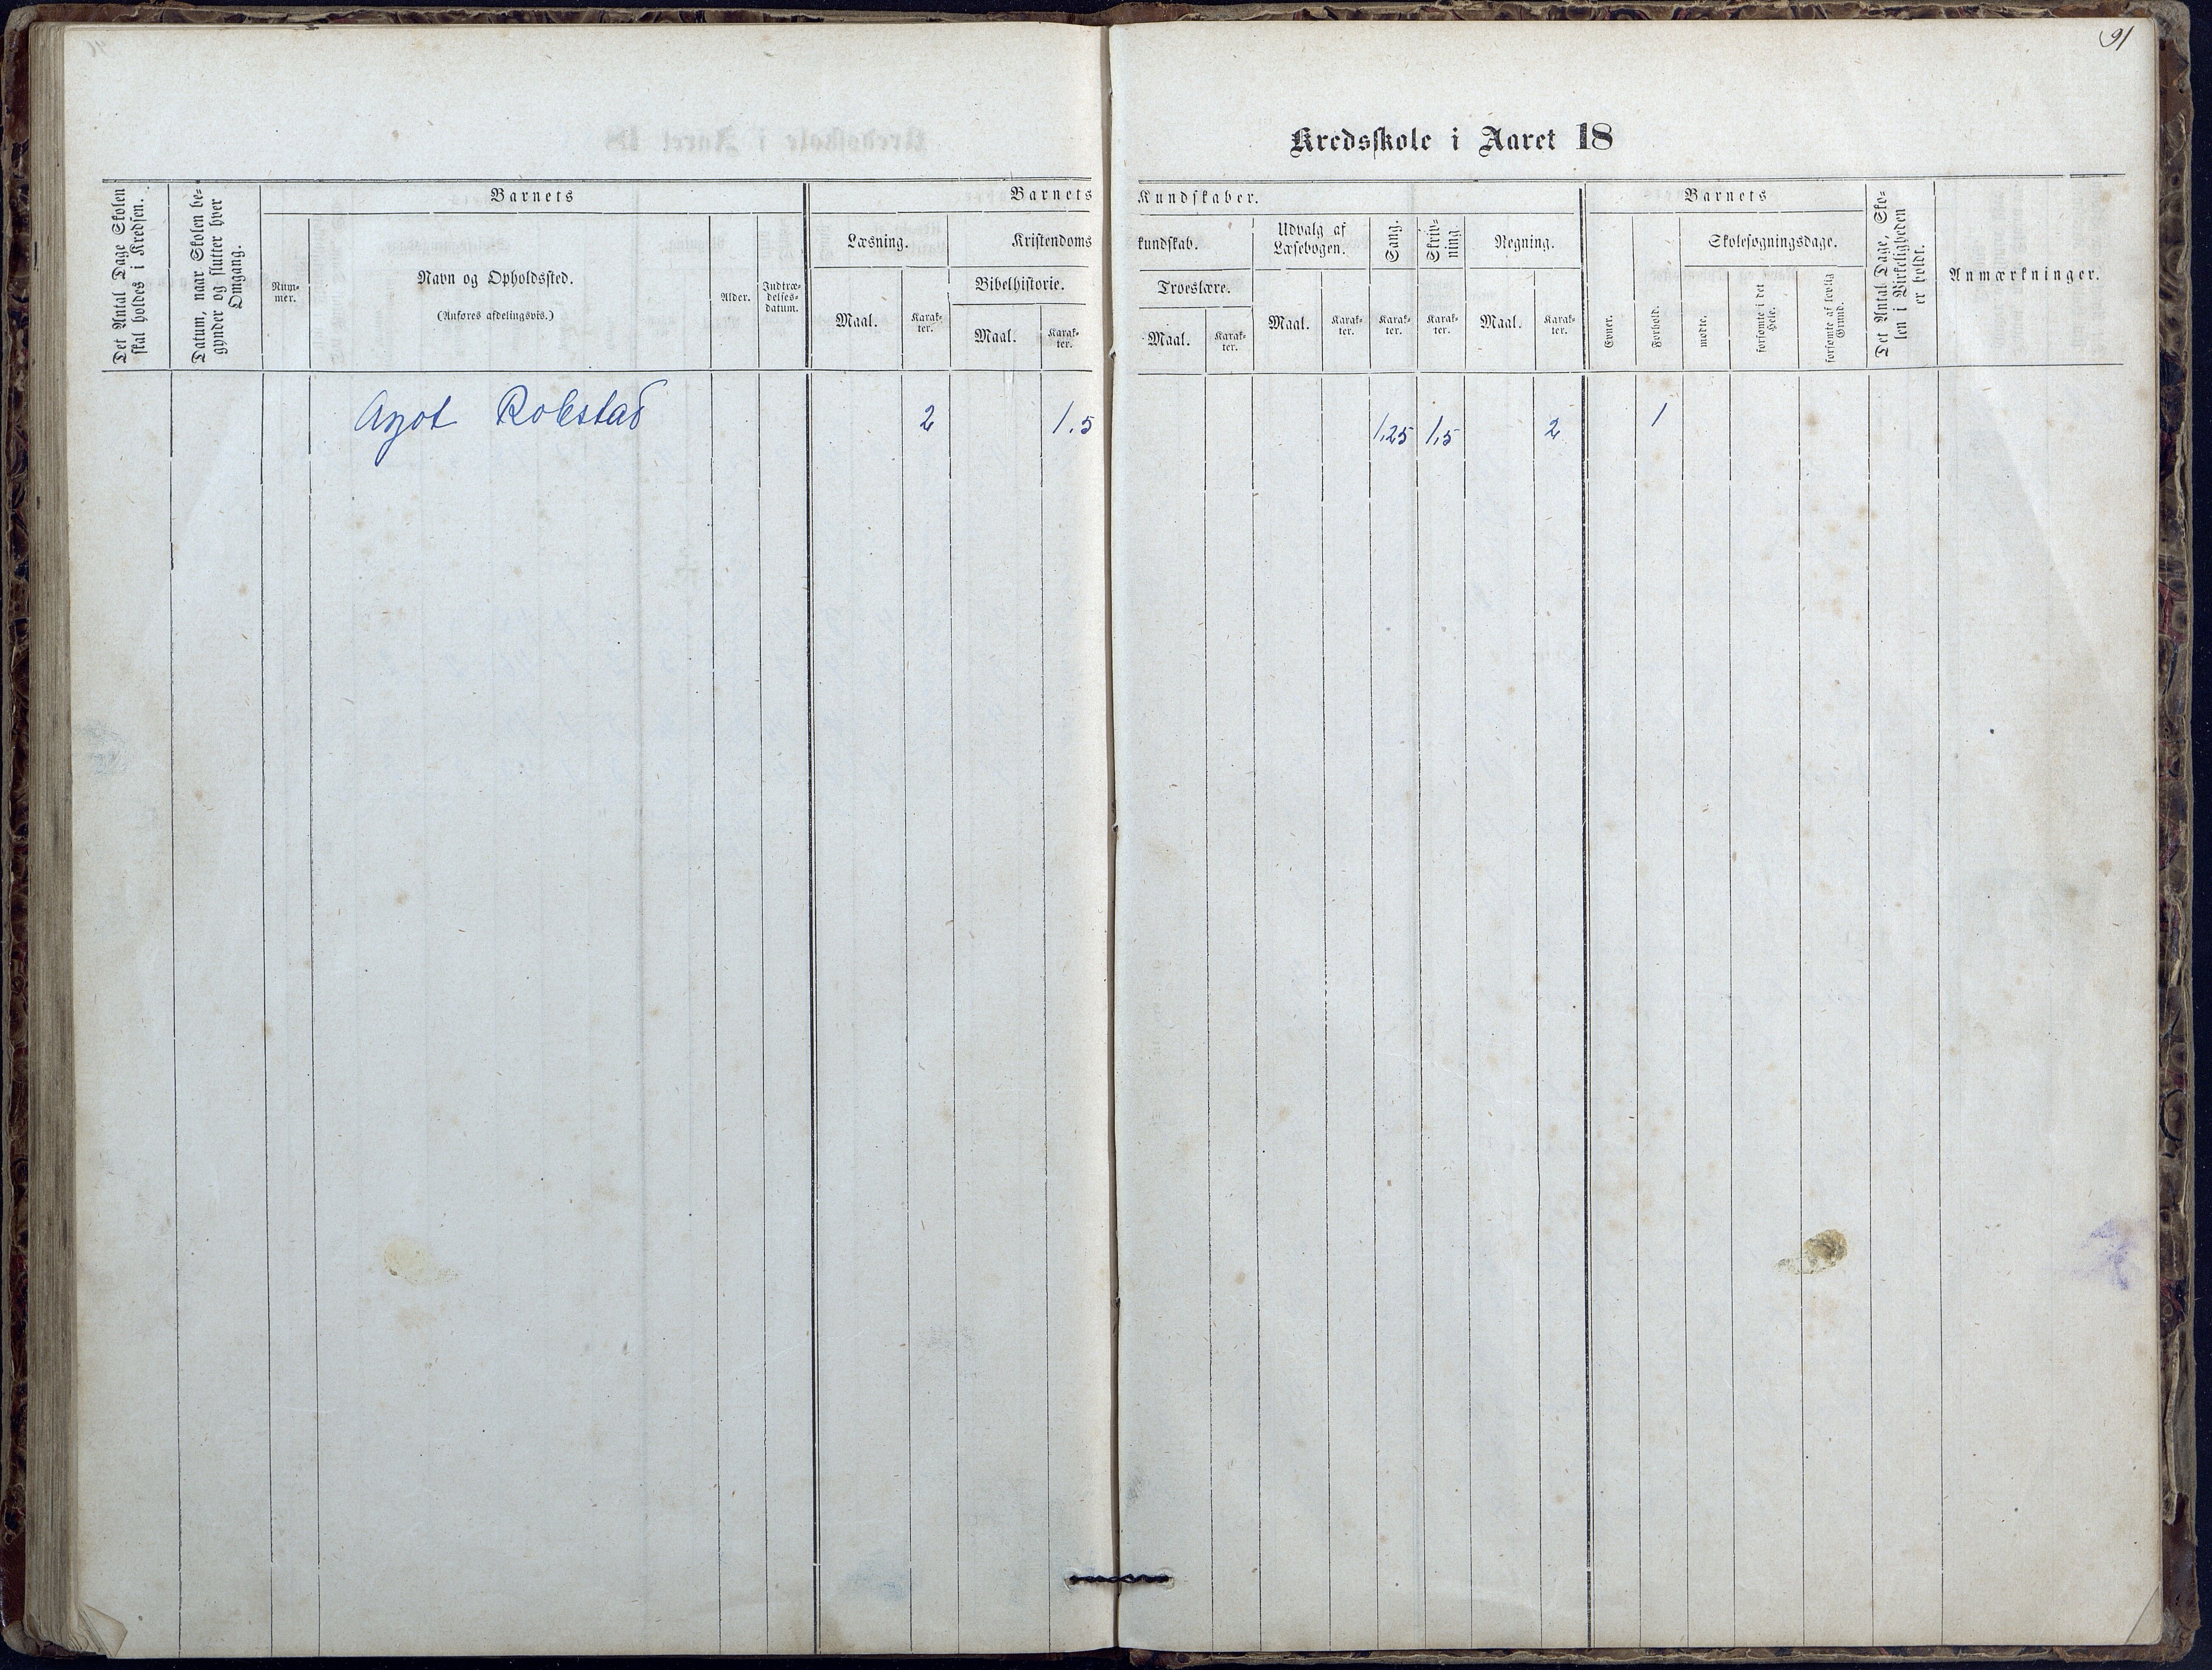 91
Kredsskole i Aaret 18
Det Antal Dage Skolen
skal holdes i Kredsen.
Datum, naar Skolen be-
gynder og slutter hver
Omgang.
Barnets
Num-
mer.
Navn og Opholdssted.
(Anføres afdelingsvis.)
Alder.
Indtræ-
delses-
datum.
Barnets
Læsning.
Maal.
Karak-
ter.
Kristendoms
Bibelhistorie.
Maal.
Karak-
ter.
Kundskaber.
kundskab.
Troeslære.
Maal.
Karak-
ter.
Udvalg af
Læsebogen.
Maal.
Karak-
ter.
Sang.
Karak-
ter.
Skriv-
ning
Karak-
ter.
Regning.
Maal.
Karak-
ter.
Barnets
Evner.
Forhold.
Skolesøgningsdage.
mødte.
forsømte i det
Hele.
forsømte af lovlig
Grund.
Det Antal Dage, Sko-
len i Virkeligheden
er holdt.
Anmærkninger.
Agot Robstad 2 1.5 1,25 1,5 2 1